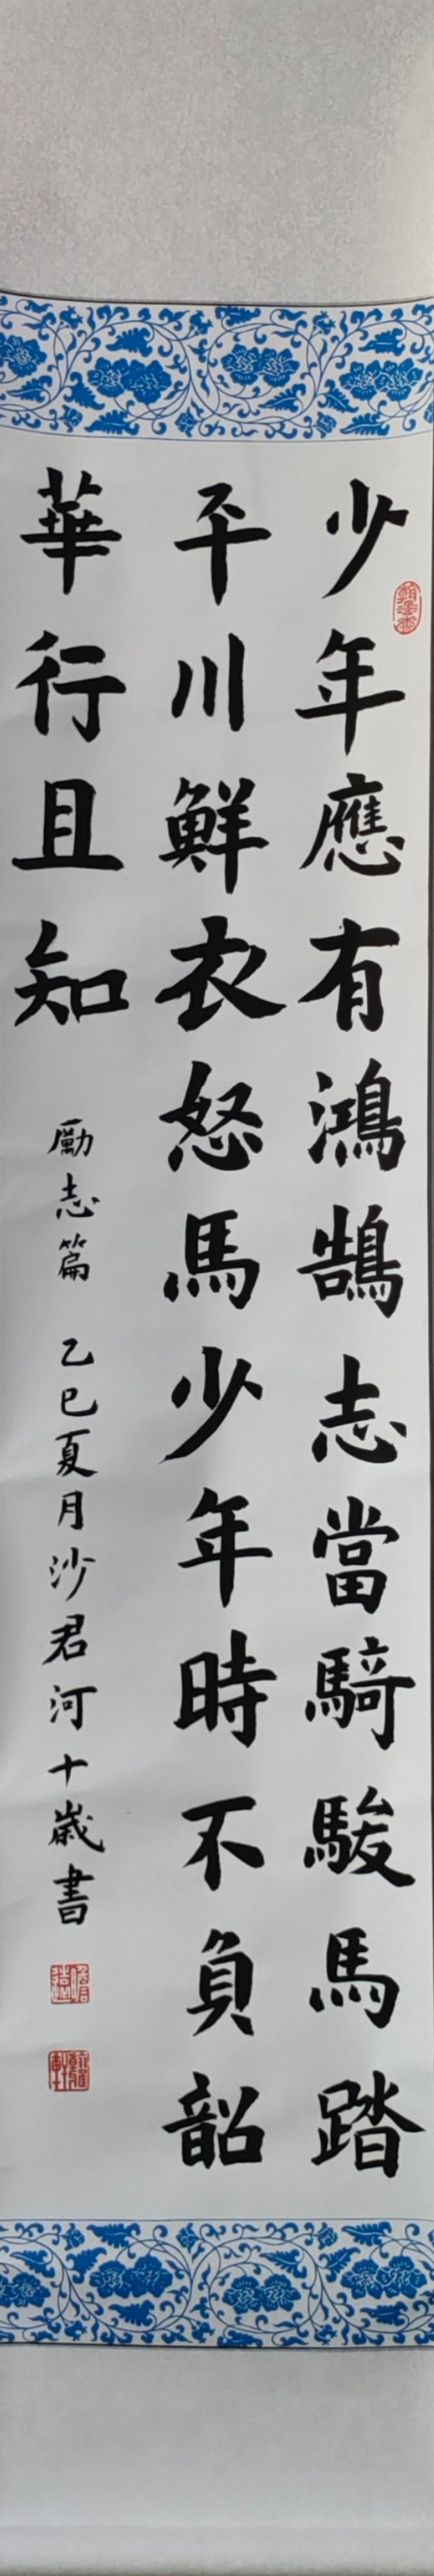 少年應有鴻鵠志當騎駿馬踏
平川鮮衣怒馬少年時不負韶
華行且知
勵志篇 乙巳夏月沙君河十歲書